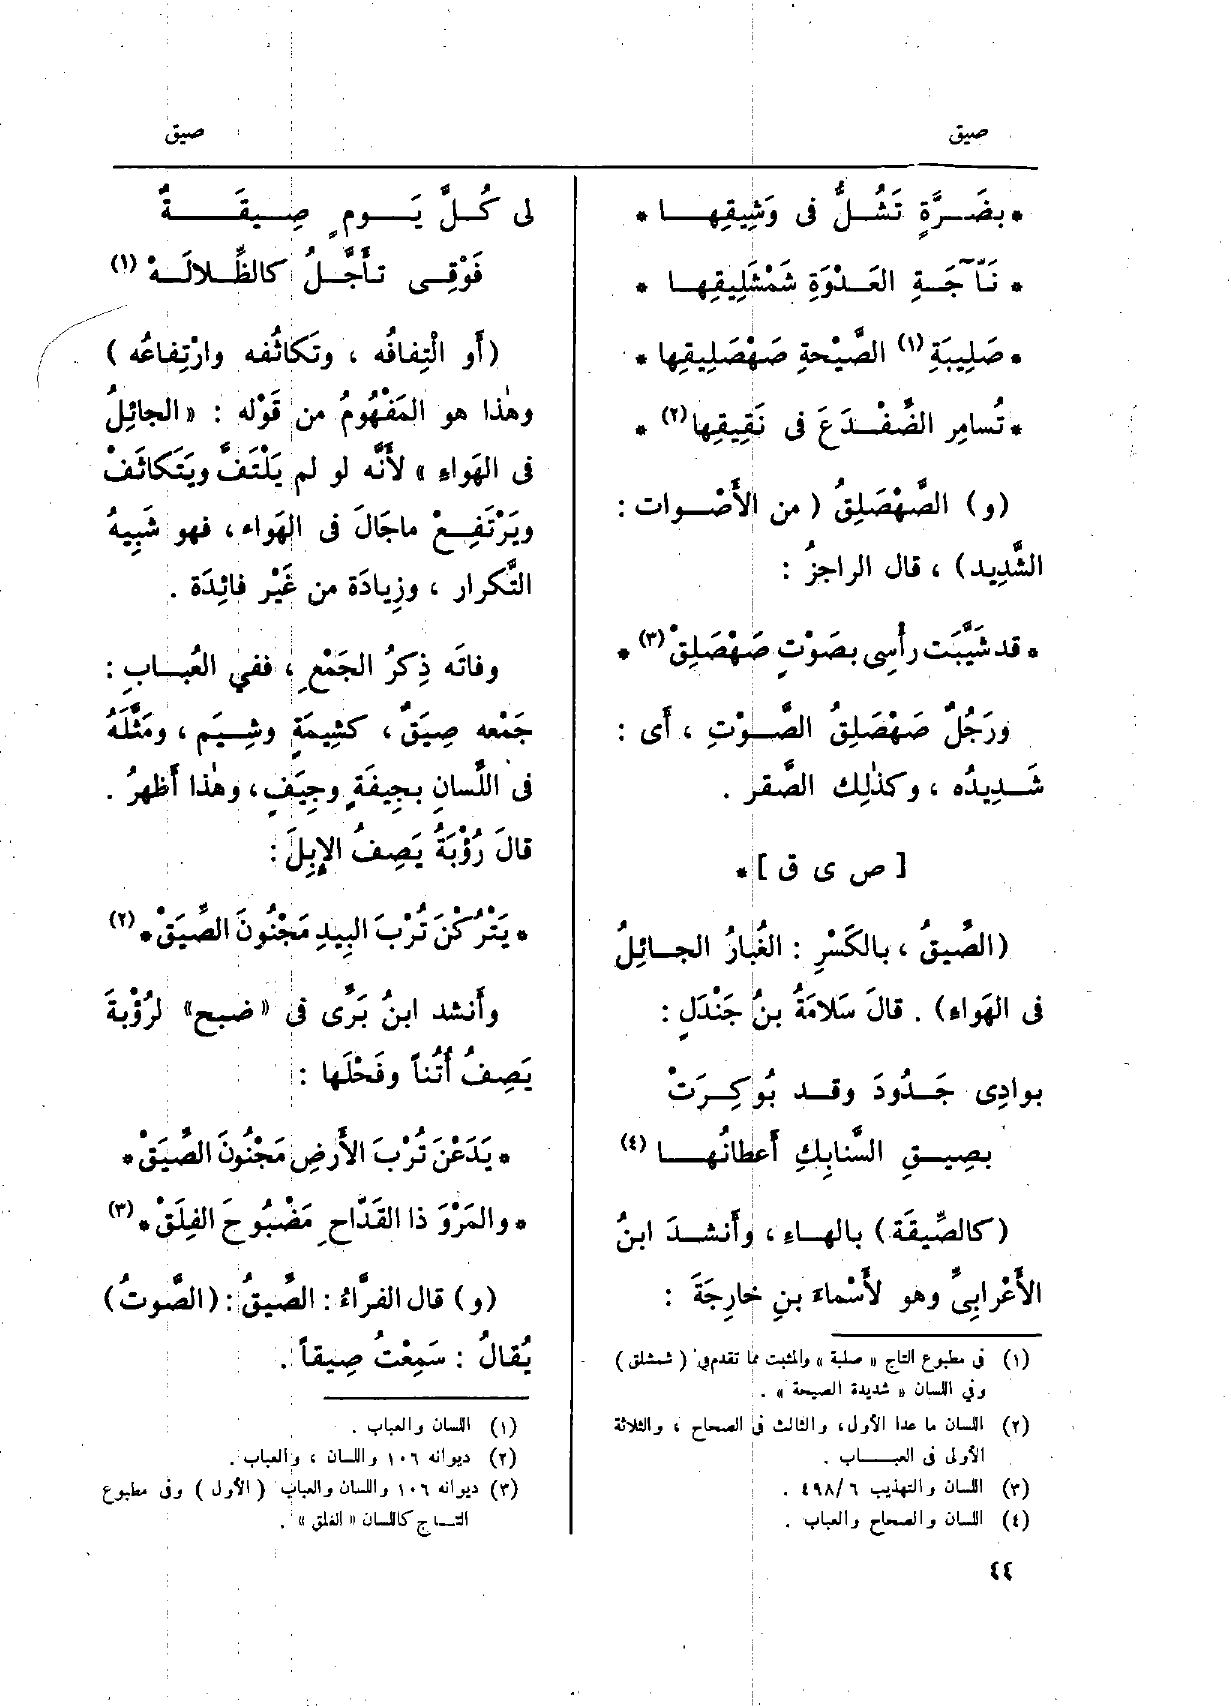 صيق
صيق
* بضَرَّةٍ تَشُلُّ فى وَشِيقِها *
* نَآّجَةِ العَدْوَةِ شَمْشَلِيقِها *
* صَلِيبَةِ (١) الصَّيْحةِ صَهْصَلِيقِها *
* تُسامِر الضِّفْدَعَ فى نَقِيقِها (٢) *
(و) الصَّهْصَلِقُ ( من الأَصْوات :
الشَّدِيد) ، قال الراجزُ :
* قد شَيَّبَت رأْسِى بصَوْتٍ صَهْصَلِقْ (٣) *
ورَجُلٌ صَهْصَلِقُ الصَّوْتِ ، أَى :
شَدِيدُه ، وكذٰلِك الصَّقر .
[ ص ى ق ] *
(الصِّيقُ ، بالكَسْرِ : الغُبارُ الجائِلُ
فى الهَواءِ) . قالَ سَلامَةُ بنُ جَنْدَلٍ :
بوادِى جَدُودَ وقد بُوكِرَتْ
بصِيقِ السَّنابِكِ أَعطانُها (٤)
(كالصِّيقَة) بالهاءِ ، وأَنشدَ ابنُ
الأَعْرابِىِّ وهو لأَسْماءَ بنِ خارِجَةَ :
(١) فى مطبوع التاج « صلبة » والمثبت مما تقدم في ( شمشلق )
وفي اللسان « شديدة الصيحة » .
(٢) اللسان ما عدا الأول، والثالث فى الصحاح ، والثلاثة
الأولى فى العباب .
(٣) اللسان والتهذيب ٤٩٨/٦ .
(٤) اللسان والصحاح والعباب .
لى كُلَّ يَومٍ صِيقَةٌ
فَوْقِى تأَجَّلُ كالظِّلالَهْ (١)
(أَو الْتِفافُه ، وتَكاثُفه وارْتِفاعُه )
وهٰذا هو المَفْهُومُ من قَوْله : « الجائِلُ
فى الهَواءِ » لأَنَّه لو لم يَلْتَفَّ ويَتَكاثَفْ
ويَرْتَفِعْ ماجَالَ فى الهَواء ، فهو شَبِيهُ
التَّكرار ، وزِيادَة من غَيْر فائِدَة .
وفاتَه ذِكرُ الجَمْعِ ، ففي العُبابِ :
جَمْعه صِيَقٌ ، كشِيمَةٍ وشِيَم ، ومَثَّلَهُ
فى اللِّسانِ بجِيفَةٍ وجِيَفٍ ، وهٰذا أَظهرُ .
قالَ رُؤْبَةُ يَصِفُ الإِبِلَ :
* يَتْرُكْنَ تُرْبَ البِيدِ مَجْنُونَ الصِّيَقْ * (٢)
وأَنشد ابنُ بَرِّى فى «ضبح» لرُؤْبةَ
يَصِفُ أُتُناً وفَحْلَها :
* يَدَعْنَ تُرْبَ الأَرضِ مَجْنُونَ الصِّيَقْ *
* والمَرْوَ ذا القَدّاحِ مَضْبُوحَ الفِلَقْ * (٣)
(و) قال الفرَّاءُ : الصِّيقُ : (الصَّوتُ)
يُقالُ : سَمِعْتُ صِيقاً .
(١) اللسان والعباب .
(٢) ديوانه ١٠٦ واللسان ، والعباب .
(٣) ديوانه ١٠٦ واللسان والعباب ( الأول ) وفى مطبوع
التاج كاللسان « الفلق » .
٤٤